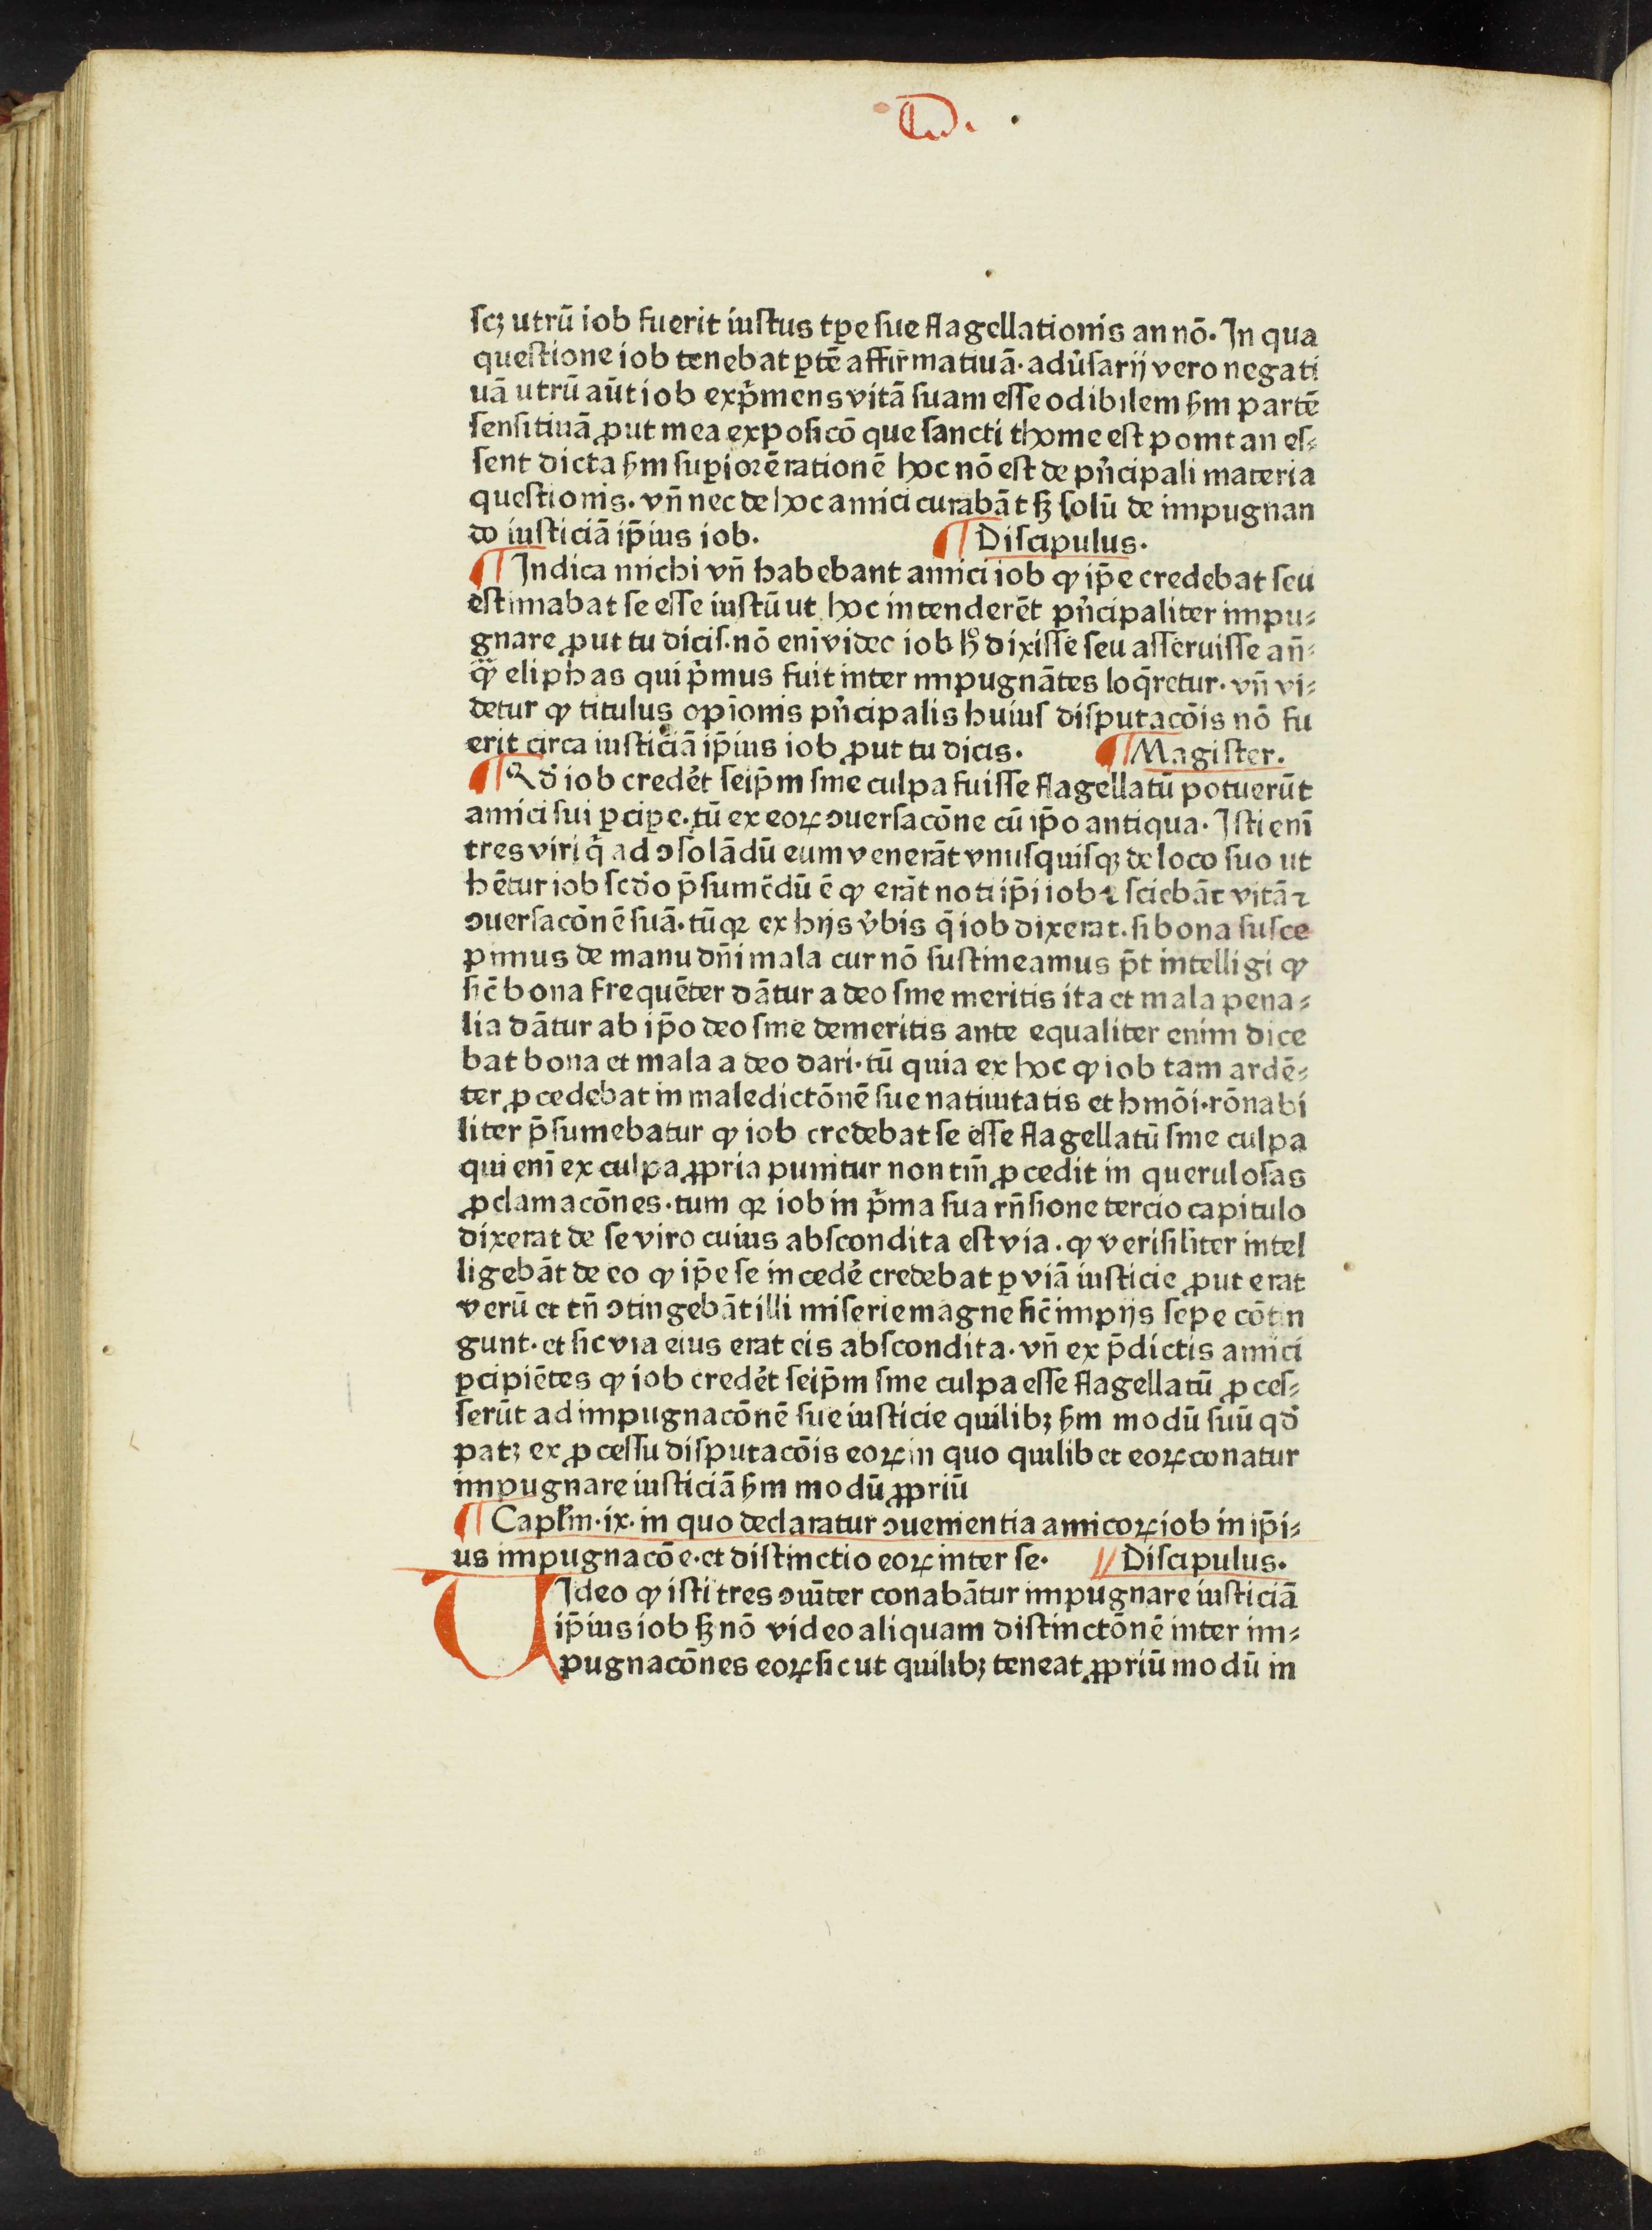 ſcꝫ utrū iob fuerit iuſtus tꝑe ſue flagellationis an nō. In qua
queſtione iob tenebat ꝑtē affirmatiuā. adv̓ſarij vero negati
uā utrū aūt iob exp̓mens vitā ſuam eſſe odibilem ẜm partē
ſenſitiuā ꝓut mea expoſicō que ſancti thome eſt ponit an eſ⸗
ſent dicta ẜm ſuꝑiorē rationē hoc nō eſt de pn̓cipali materia
queſtionis. vn̄ nec de hoc amici curabāt ſꝫ ſolū de impugnan
do iuſticiā ip̄ius iob. ¶ Diſcipulus.
¶ Indica michi vn̄ habebant amici iob ꝙ ip̄e credebat ſeu
eſtimabat ſe eſſe iuſtū ut hoc intenderēt pn̓cipaliter impu⸗
gnare ꝓut tu diciſ. nō enī videc iob hͦ dixiſſe ſeu aſſeruiſſe an̄⸗
ꝙ̈ eliphas qui p̓mus fuit inter impugnātes loq̄retur. vn̄ vi⸗
detur ꝙ titulus opīonis pn̓cipalis huiuſ diſputacōis nō fu
erit circa iuſticiā ip̄ius iob ꝓut tu dicis. ¶ Magiſter.
¶ Qd̓ iob crederꝫ ſeip̄m ſine culpa fuiſſe flagellatū potuerūt
amici ſui ꝑciꝑe. tū ex eoꝝ ꝯuerſacōne cū ip̄o antiqua. Iſti enī
tres viri q̓ ad ꝯſolādū eum venerāt vnuſquiſqꝫ de loco ſuo ut
hētur iob ſcd̓o p̄ſumēdū ē ꝙ erāt noti ip̄i iob ⁊ ſciebāt vitā ⁊
ꝯuerſacōnē ſuā. tū qꝛ ex hijs v̓bis q̄ iob dixerat. ſi bona ſuſce
pimus de manu dn̄i mala cur nō ſuſtineamus p̄t intelligi ꝙ
ſic̄ bona frequēter dātur a deo ſine meritis ita et mala pena⸗
lia dātur ab ip̄o deo ſine demeritis ante equaliter enim dice
bat bona et mala a deo dari. tū quia ex hoc ꝙ iob tam ardē⸗
ter ꝓcedebat in maledictōnē ſue natiuitatis et hmōi. rōnabi
liter p̄ſumebatur ꝙ iob credebat ſe eſſe flagellatū ſine culpa
qui enī ex culpa ꝓpria punitur non tm̄ ꝓcedit in queruloſas
ꝓclamacōnes. tum qꝛ iob in p̓ma ſua rn̄ſione tercio capitulo
dixerat de ſe viro cuius abſcondita eſt via. ꝙ veriſilīter intel
ligebāt de eo ꝙ ip̄e ſe incede̓ credebat ꝑ viā iuſticie ꝓut erat
verū et tn̄ ꝯtingebāt illi miſerie magne ſic̄ impijs ſepe cōtin
gunt. et ſic via eius erat eis abſcondita. vn̄ ex p̄dictis amici
ꝑcipiētes ꝙ iob crede̓t ſeip̄m ſine culpa eſſe flagellatū ꝓceſ⸗
ſerūt ad impugnacōnē ſue iuſticie quilibꝫ ẜm modū ſuū qd̓
patꝫ ex ꝓceſſu diſputacōis eoꝝ in quo quilibet eoꝝ conatur
impugnare iuſticiā ẜm modū ꝓpriū
¶ Capl̓m. ix. in quo declaratur ꝯuenientia amicoꝝ iob in ip̄i⸗
us impugnacōe. et diſtinctio eoꝝ inter ſe. // Diſcipulus.
VIdeo ꝙ iſti tres ꝯuīter conabātur impugnare iuſticiā
ip̄ius iob ſꝫ nō video aliquam diſtinctōnē inter im⸗
pugnacōnes eoꝝ ſicut quilibꝫ teneat ꝓpriū modū in